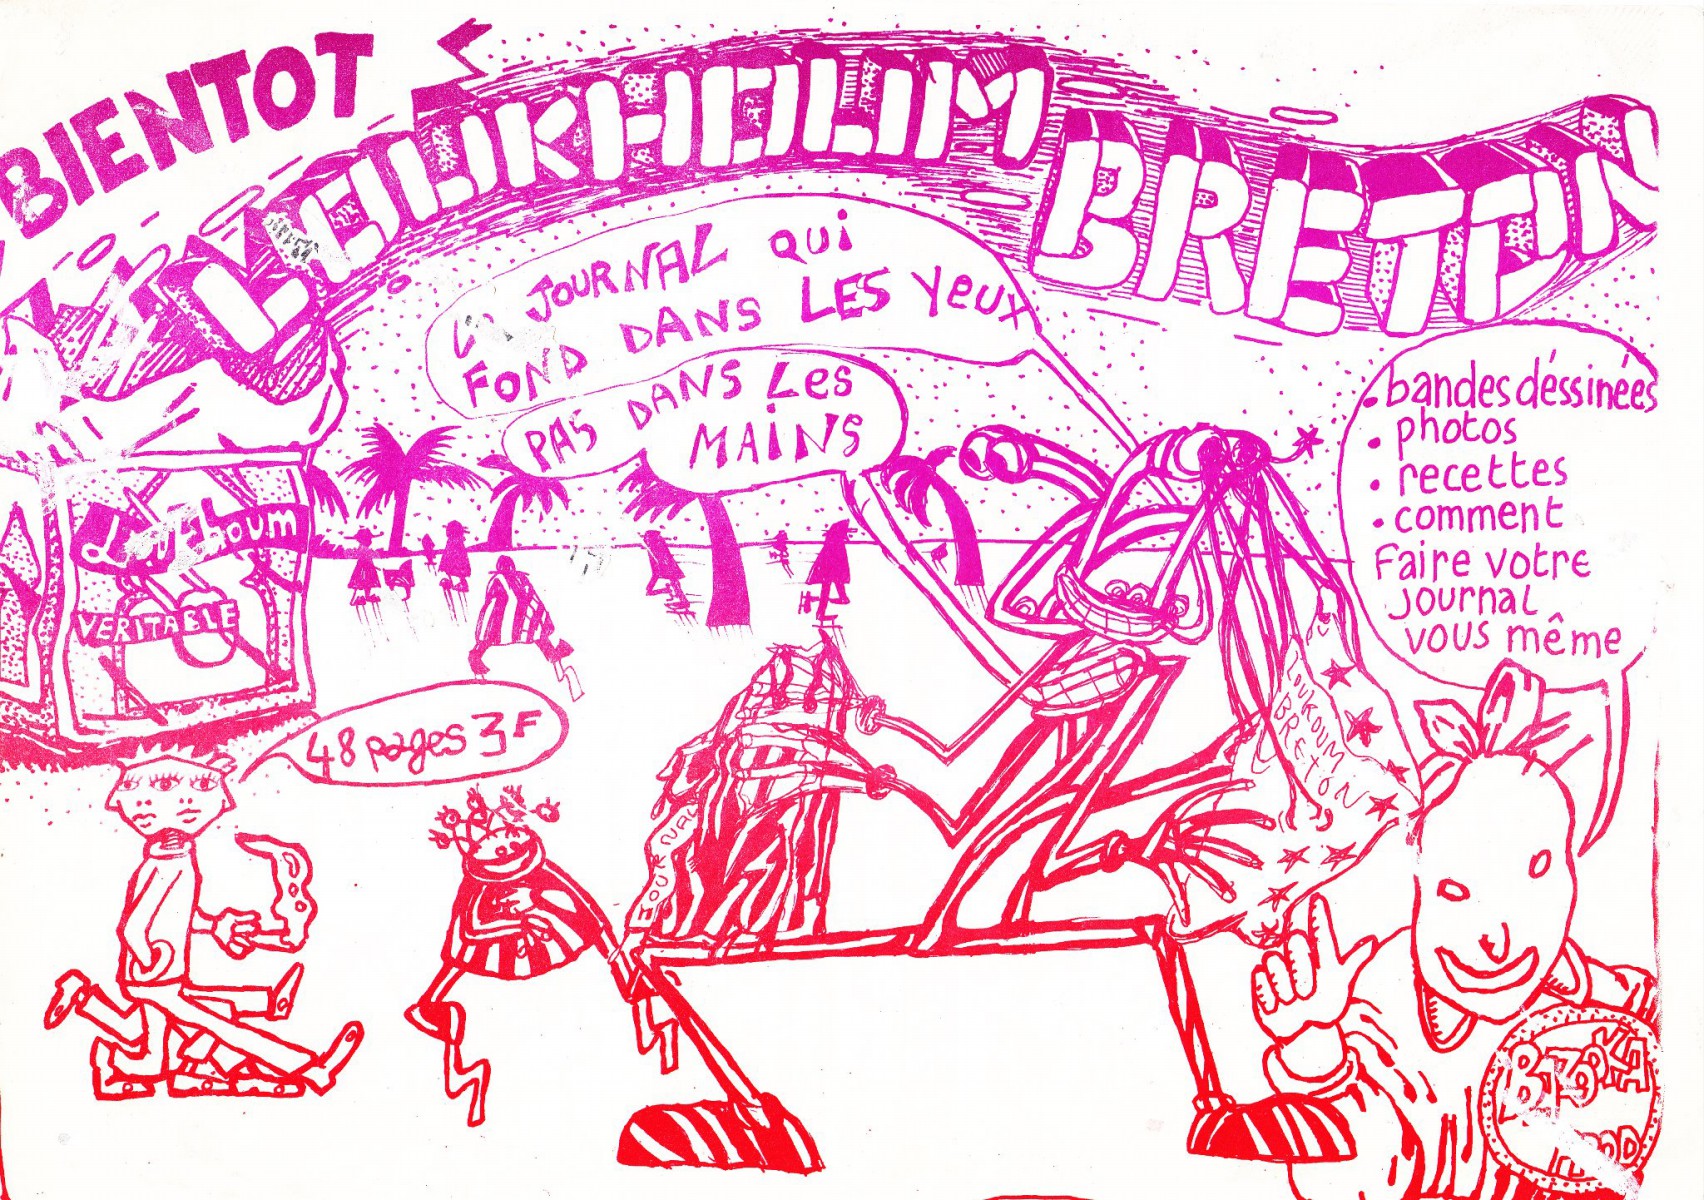 BIENTOT
LOUKHOUM BRETON
JOURNAL QUI
FOND DANS LES YEUX
PAS DANS LES
MAINS
. bandes déssinées
. photos
. recettes
. comment
Faire votre
journal
vous même
Loukhoum
VERITABLE
48 pages 3F
LOUKOUM
BRETON
JOURNAL